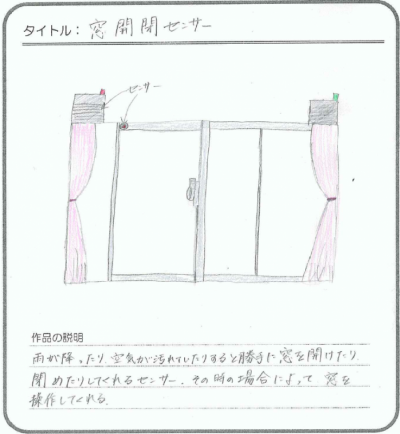 タイトル： 窓開閉センサー
センサー
作品の説明
雨が降ったり、空気が汚れていたりすると勝手に窓を開けたり
閉めたりしてくれるセンサー、その時の場合によって窓を
操作してくれる。